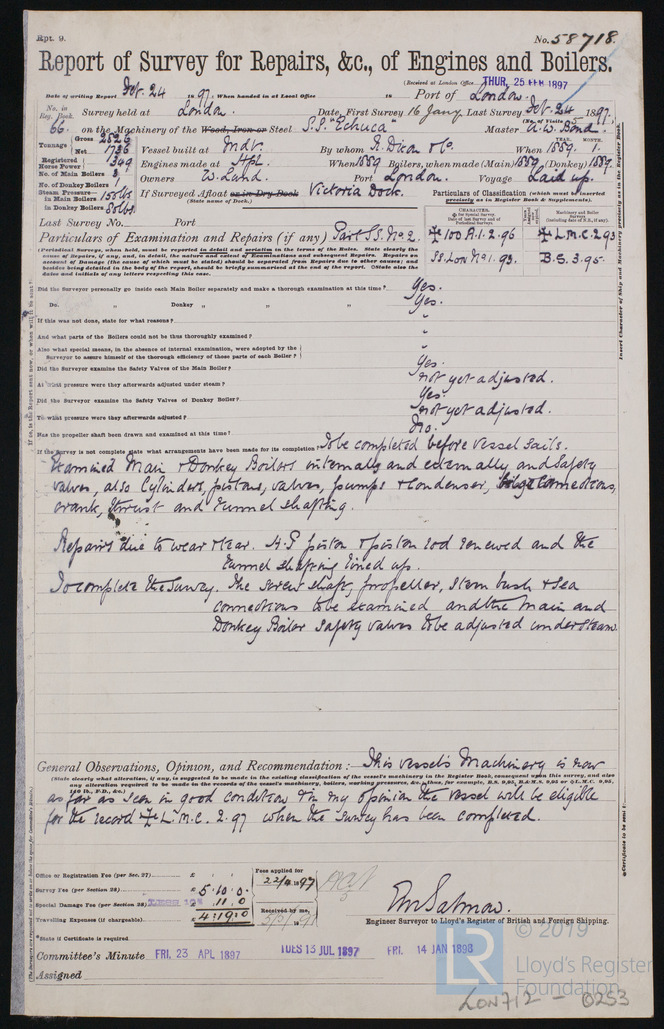 Rpt. 9.
No. 58718.
Report of Survey for Repairs, &c., of Engines and Boilers.
(Received at London Office THUR, 25 FEB 1897
Date of writing Report Feb. 24 1897. When handed in at Local Office 18 Port of London.
No. in Reg. Book. Survey held at London. Date, First Survey 16 Jany Last Survey Feb. 24 1897.
(No. of Visits 5)
66. on the Machinery of the Wood, Iron or Steel S.S. "Echuca" Master A.W. Bond.
Tonnage Gross 2829 Net 1736 Vessel built at Mdb. By whom R. Dixon & Co. When 1889. 1.
YEAR. MONTH.
Registered Horse Power 349 Engines made at Hpl. When 1889. Boilers, when made (Main) 1889. (Donkey) 1889.
No. of Main Boilers 2. Owners W. Lund. Port London. Voyage Laid up.
No. of Donkey Boilers
Steam Pressure in Main Boilers 150 lbs If Surveyed Afloat or in Dry Dock Victoria Dock.
(State name of Dock.)
in Donkey Boilers 80 lbs
Particulars of Classification (which must be inserted precisely as in Register Book & Supplements).
Last Survey No. Port
CHARACTER.
Machinery and Boiler Surveys
100 A.1. 2.96 L.M.C. 2.93
SS. Lon No 1. 93. B.S. 3.95.
Particulars of Examination and Repairs (if any) Part S.S. No. 2.
(Periodical Surveys, when held, must be reported in detail and seriatim in the terms of the Rules. State clearly the cause of Repairs, if any, and, in detail, the nature and extent of Examinations and subsequent Repairs. Repairs on account of Damage (the cause of which must be stated) should be separated from Repairs due to other causes; and besides being detailed in the body of the report, should be briefly summarised at the end of the report. State also the dates and initials of any letters respecting this case.
Did the Surveyor personally go inside each Main Boiler separately and make a thorough examination at this time? Yes.
Do. " Donkey " " " Yes.
If this was not done, state for what reasons? "
And what parts of the Boilers could not be thus thoroughly examined? "
Also what special means, in the absence of internal examination, were adopted by the
Surveyor to assure himself of the thorough efficiency of those parts of each Boiler? "
Did the Surveyor examine the Safety Valves of the Main Boiler? Yes.
At what pressure were they afterwards adjusted under steam? Not yet adjusted.
Did the Surveyor examine the Safety Valves of Donkey Boiler? Yes.
To what pressure were they afterwards adjusted? Not yet adjusted.
Has the propeller shaft been drawn and examined at this time? No.
If the Survey is not complete state what arrangements have been made for its completion To be completed before vessel sails.
Examined Main & Donkey Boilers internally and externally and Safety
valves, also Cylinders, pistons, valves, pumps & condenser, bilge connections,
crank, thrust and tunnel shafting.
Repairs due to wear & tear. H.P. piston & piston rod renewed and the
tunnel shafting lined up.
To complete the Survey. The screw shaft, propeller, stern bush & sea
connections to be examined and the main and
Donkey Boiler safety valves to be adjusted under steam.
General Observations, Opinion, and Recommendation:— This vessel's Machinery is now
(State clearly what alteration, if any, is suggested to be made in the existing classification of the vessel's machinery in the Register Book, consequent upon this survey, and also
as far as seen in good condition & in my opinion the vessel will be eligible
for the record L.M.C. 2.97 when the survey has been completed.
Office or Registration Fee (per Sec. 27) £ : :
Survey Fee (per Section 28) £ 5.10.0.
Special Damage Fee (per Section 28) LESS 10% .11.0
Travelling Expenses (if chargeable) £ 4.19.0
Fees applied for
22/4 1897
Received by me,
E.W. Salmon.
Engineer Surveyor to Lloyd's Register of British and Foreign Shipping.
*State if Certificate is required
Committee's Minute FRI. 23 APL 1897 TUES 13 JUL 1897 FRI. 14 JAN 1898
Assigned
LR
© 2019
Lloyd's Register
Foundation
LON712 - 0253